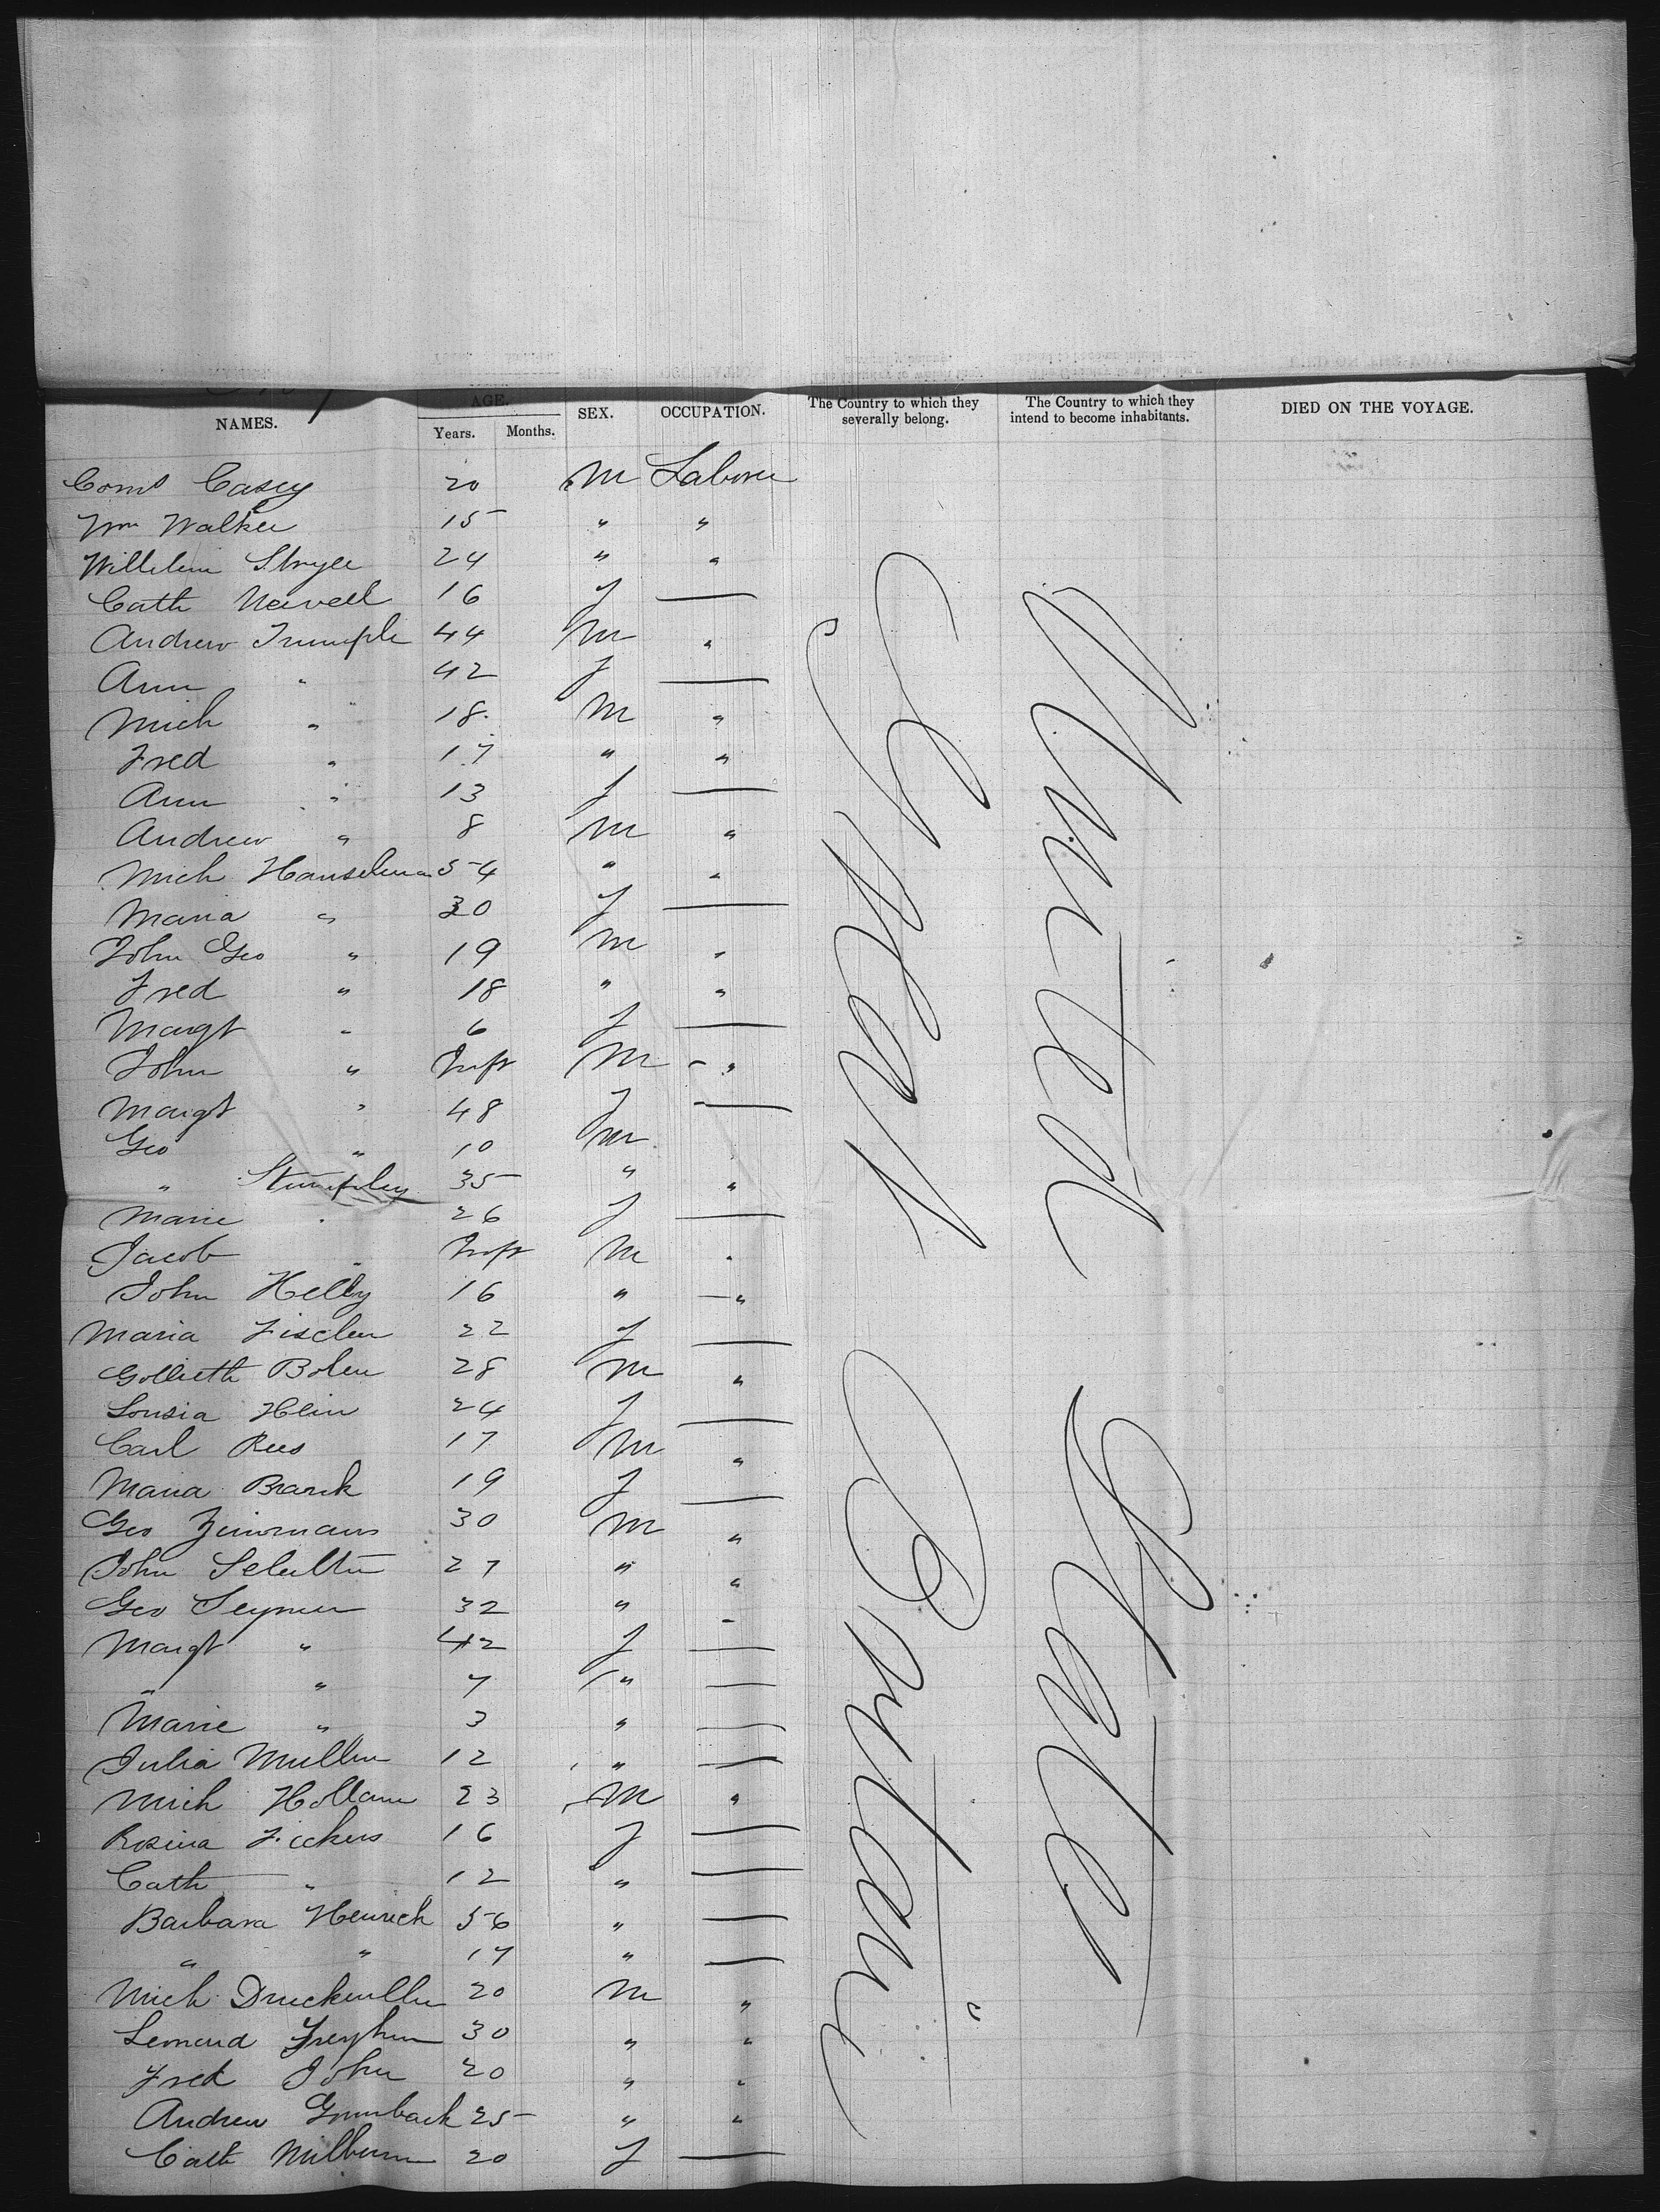 NAMES. AGE. Years. Months. SEX. OCCUPATION. The Country to which they severally belong. The Country to which they intend to become inhabitants. DIED ON THE VOYAGE.
Corns Casey 20 M Laborer
Wm Walker 15 " "
Wilhelm 24 " "
Cath 16 f —
Andrew Trumple 44 M "
Ann " 42 f —
Mich " 18 M "
Fred " 17 " "
Ann " 13 f —
Andrew " 8 M "
Mich Hanselman 54 " "
Maria " 30 f —
John Geo " 19 M "
Fred " 18 " "
Margt " 6 f —
John " Inft M "
Margt " 48 f —
Geo " 10 M
" Stumpley 35 " "
Marie " 26 f —
Jacob " Inft M "
John Helby 16 " "
Maria Fischer 22 f —
Gollieth Bolen 28 M "
Lousia Hein 24 f —
Carl Rees 17 M "
Maria Brank 19 f —
Geo Zimmans 30 M "
John 27 " "
Geo Seymer 32 " "
Margt " 42 f —
" " 7 " —
Marie " 3 " —
Julia Muller 12 " —
Mich Hollam 23 M "
Rosina Fickers 16 f —
Cath " 12 " —
Barbara Henrich 56 " —
" " 17 " —
Mich Druckmiller 20 M "
Leonard 30 " "
Fred John 20 " "
Andrew Grumback 25 " "
Cath Milburn 20 f —
Great Britain
United States